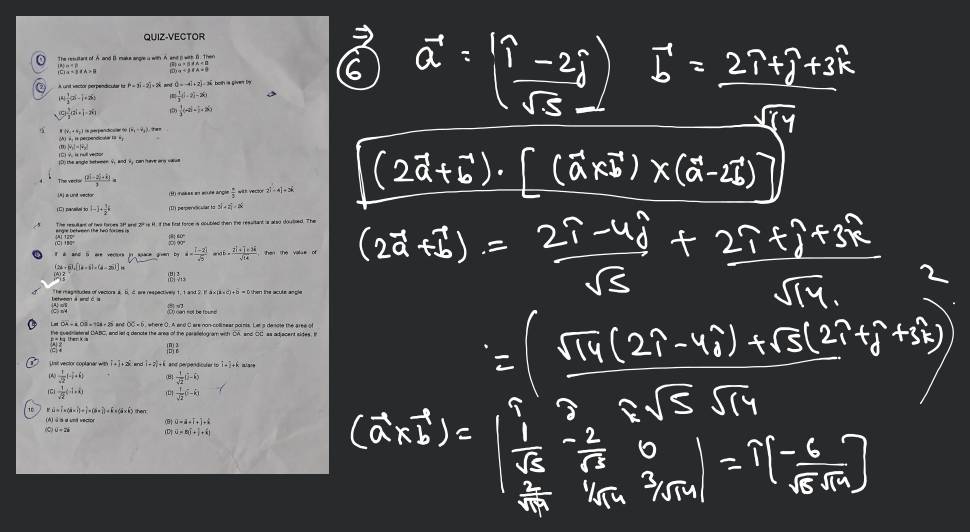 QUIZ-VECTOR
1 The resultant of A⃗ and B⃗ make angle α with A⃗ and β with B⃗. Then
(A) α < β (B) α < β if A < B
(C) α < β if A > B (D) α < β if A = B
2 A unit vector perpendicular to P⃗ = 3î - 2ĵ + 2k̂ and Q⃗ = -4î + 2ĵ - 3k̂ both is given by
3. If (v⃗₁ + v⃗₂) is perpendicular to (v⃗₁ - v⃗₂), then
(A) v⃗₁ is perpendicular to v⃗₂
(B) |v⃗₁| = |v⃗₂|
(C) v⃗₁ is null vector
(D) the angle between v⃗₁ and v⃗₂ can have any value
4. The vector (2î - 2ĵ + k̂)/3 is
(A) a unit vector (B) makes an acute angle π/3 with vector 2î - 4ĵ + 3k̂
(C) parallel to î - ĵ + 1/2 k̂ (D) perpendicular to 3î + 2ĵ - 2k̂
5 The resultant of two forces 3P and 2P is R. If the first force is doubled then the resultant is also doubled. The
angle between the two forces is
(A) 120° (B) 60°
(C) 180° (D) 90°
6 If a⃗ and b⃗ are vectors in space given by a⃗ = (î - 2ĵ)/√5 and b⃗ = (2î + ĵ + 3k̂)/√14, then the value of
(2a⃗ + b⃗).[(a⃗ × b⃗) × (a⃗ - 2b⃗)] is
(A) 2 (B) 3
5 (D) √13
The magnitudes of vectors a⃗, b⃗, c⃗ are respectively 1, 1 and 2. If a⃗×(a⃗×c⃗) + b⃗ = 0 then the acute angle
between a⃗ and c⃗ is
(A) π/6 (B) π/3
(C) π/4 (D) can not be found
Let OA = a, OB = 10a + 2b and OC = b, where O, A and C are non-collinear points. Let p denote the area of
the quadrilateral OABC, and let q denote the area of the parallelogram with OA and OC as adjacent sides. If
p = kq, then k is
(A) 2 (B) 3
(C) 4 (D) 6
Unit vector coplanar with î + ĵ + 2k̂ and î + 2ĵ + k̂ and perpendicular to î + ĵ + k̂ is/are
(A) 1/√2 (-ĵ + k̂)
10. If u⃗ = î × (a⃗ × î) + ĵ × (a⃗ × ĵ) + k̂ × (a⃗ × k̂) then:
(A) u⃗ is a unit vector (B) u⃗ = a⃗ + î + ĵ + k̂
(C) u⃗ = 2a⃗ (D) u⃗ = 8(î + ĵ + k̂)
⇒
6 a⃗ = (î - 2ĵ)/√5 b⃗ = (2î + ĵ + 3k̂)/√14
(2a⃗ + b⃗) · [(a⃗ × b⃗) × (a⃗ - 2b⃗)]
(2a⃗ + b⃗) = (2î - 4ĵ)/√5 + (2î + ĵ + 3k̂)/√14.
= (√14(2î - 4ĵ) + √5(2î + ĵ + 3k̂))²
√5 √14
î ĵ k̂
(a⃗ × b⃗) = | 1/√5 -2/√5 0 | = î[-6/√5√14]
2/√14 1/√14 3/√14